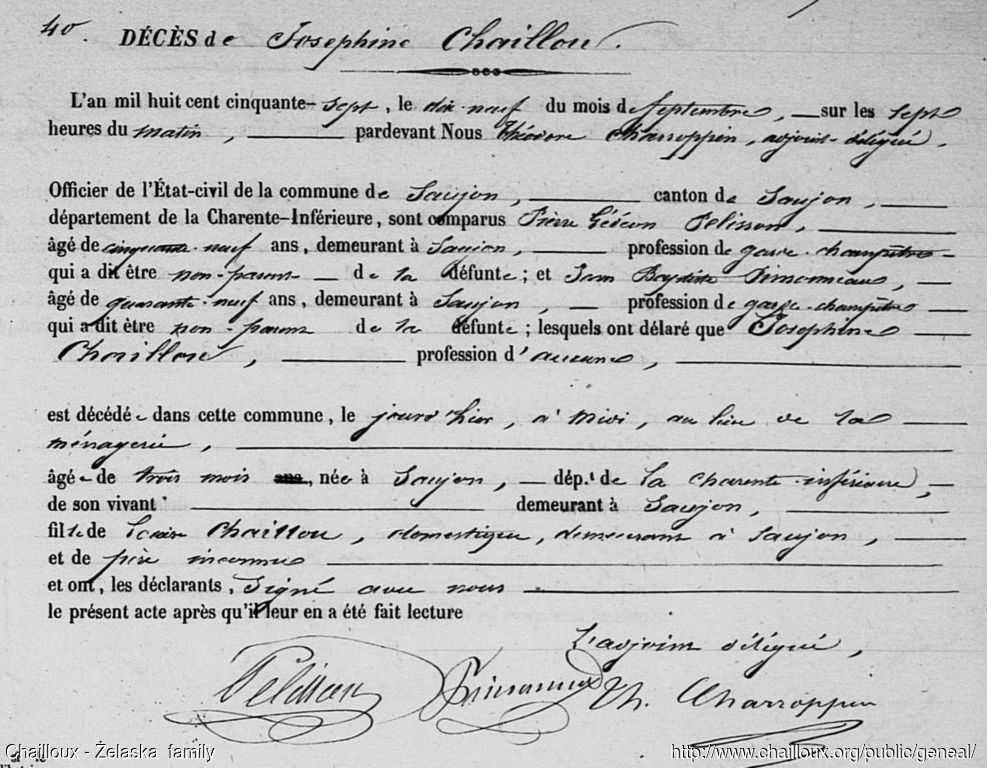 40. DÉCÈS de Josephine Chaillou.
L'an mil huit cent cinquante-sept, le dix-neuf du mois de Septembre, sur les sept
heures du matin, pardevant Nous Théodore Charroppin, adjoint délégué,
Officier de l'État-civil de la commune de Saujon, canton de Saujon,
département de la Charente-Inférieure, sont comparus Pierre Gédéon Pelisson,
âgé de cinquante-neuf ans, demeurant à Saujon, profession de garde-champêtre
qui a dit être non-parent de la défunte; et Jean Baptiste
âgé de quarante-neuf ans, demeurant à Saujon, profession de garde-champêtre
qui a dit être non-parent de la défunte; lesquels ont délaré que Josephine
Chaillou, profession d'aucune,
est décédée dans cette commune, le jourd'hier, à midi, au lieu de la
ménagerie,
âgée de trois mois ans, née à Saujon, dép.t de la Charente-inférieure,
de son vivant demeurant à Saujon,
fille de Chaillou, domestique, demeurant à Saujon,
et de père inconnu
et ont, les déclarants, signé avec nous
le présent acte après qu'il leur en a été fait lecture
L'adjoint délégué,
Pelisson Th. Charroppin
Chailloux - Żelaska family http://www.chailloux.org/public/geneal/